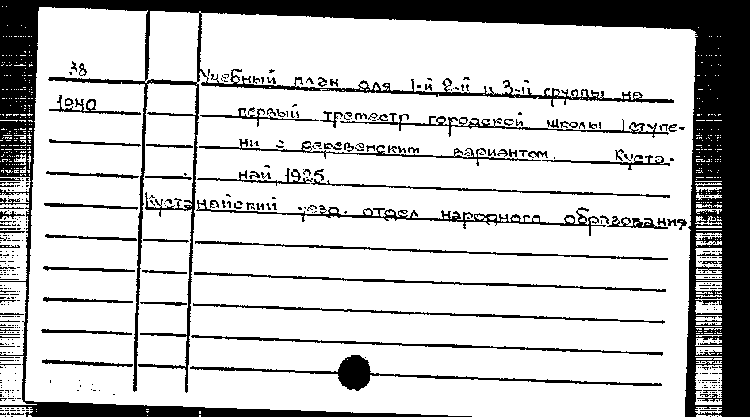 38 Учебный план для 1-й, 2-й и 3-й группы на
1940 первый триместр городской школы I ступе-
ни с деревенским вариантом. Куста-
най, 1925.
Кустанайский уезд. отдел народного образования.